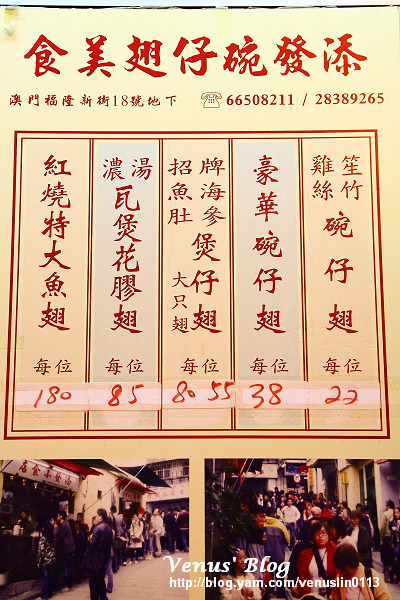 添發碗仔翅美食
澳門福隆新街18號地下 ☏ 66508211 / 28389265
笙竹
雞絲
碗仔翅
每位
22
豪華碗仔翅
每位
38
招牌
海參
魚肚
煲仔翅
大只翅
每位
80 55
濃湯
瓦煲花膠翅
每位
85
紅燒特大魚翅
每位
180
添發小食店
Venus' Blog
http://blog.yam.com/venuslin0113